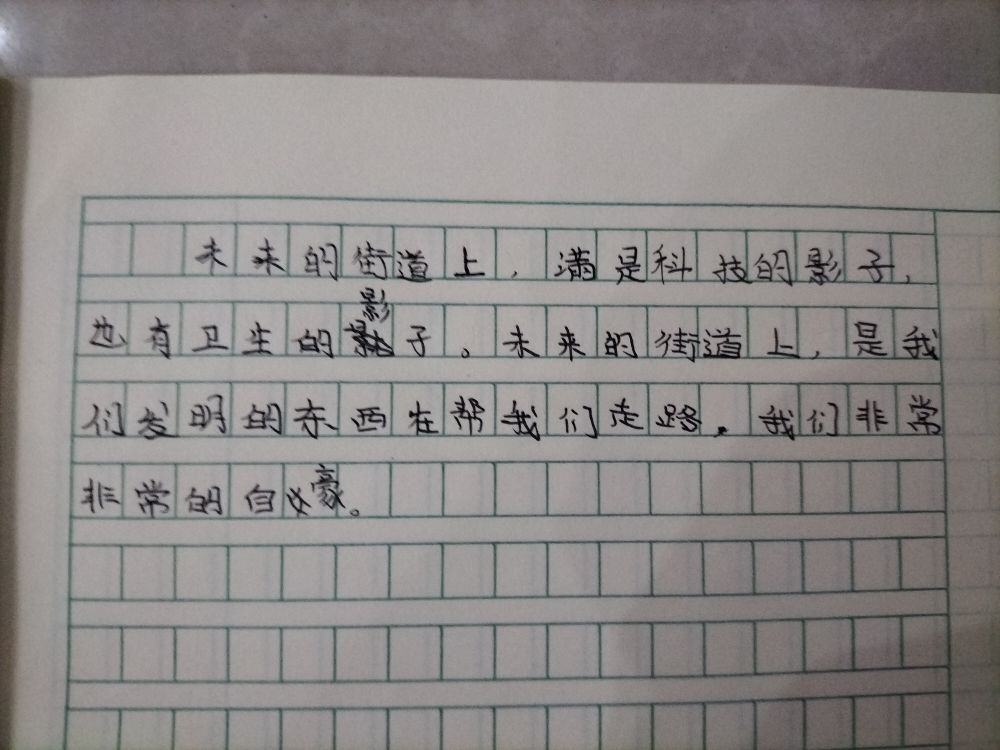 未来的街道上，满是科技的影子，
也有卫生的影子。未来的街道上，是我
们发明的东西在帮我们走路。我们非常
非常的自豪。